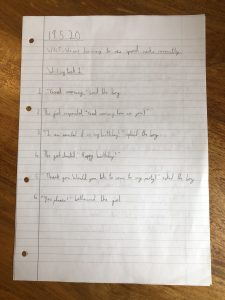 19.5.20
WALT: We are learning to use speech marks correctly.
Writing task 1
1. "Good morning," said the boy.
2. The girl responded "Good morning how are you?"
3. "I am excited it is my birthday!" replied the boy.
4. The girl shouted "Happy birthday!"
5. "Thank you. Would you like to come to my party?" asked the boy.
6. "Yes please!" bellowed the girl.